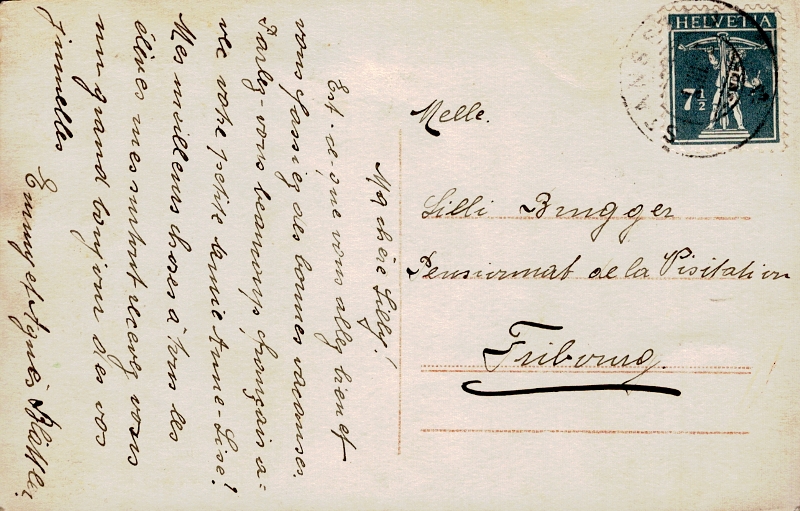 Ma chère Lilly!
Est-ce que vous allez bien et
vous passiez des bonnes vacanses.
Parlez-vous beaucoup français a=
vec votre petite amie Anne-Lise?
Mes meilleurs choses à tous les
élèves mes surtout recevez vous
un grand bonjour des vos
jumelles
Emmy et Agnès
Melle.
Lilli Brugger
Pensionnat de la Visitation
Fribourg.
HELVETIA
7½
STANS